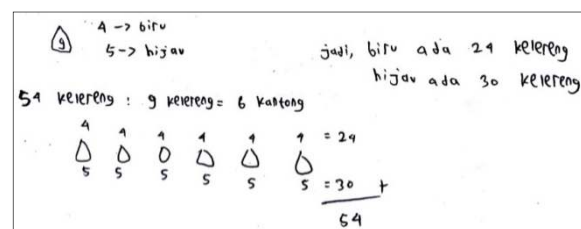 9
4 -> biru
5 -> hijau
jadi, biru ada 24 kelereng
hijau ada 30 kelereng
54 kelereng : 9 kelereng = 6 kantong
4 4 4 4 4 4 = 24
5 5 5 5 5 5 = 30 +
54